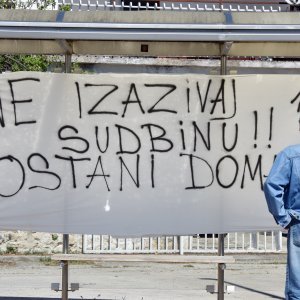 NE IZAZIVAJ
SUDBINU!!
OSTANI DOMA